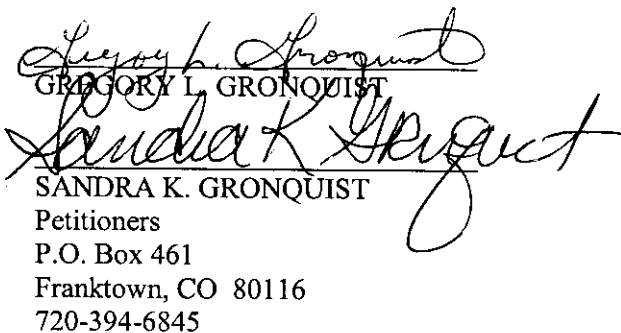 Gregory L. Gronquist
GREGORY L. GRONQUIST
Sandra K Gronquist
SANDRA K. GRONQUIST
Petitioners
P.O. Box 461
Franktown, CO 80116
720-394-6845